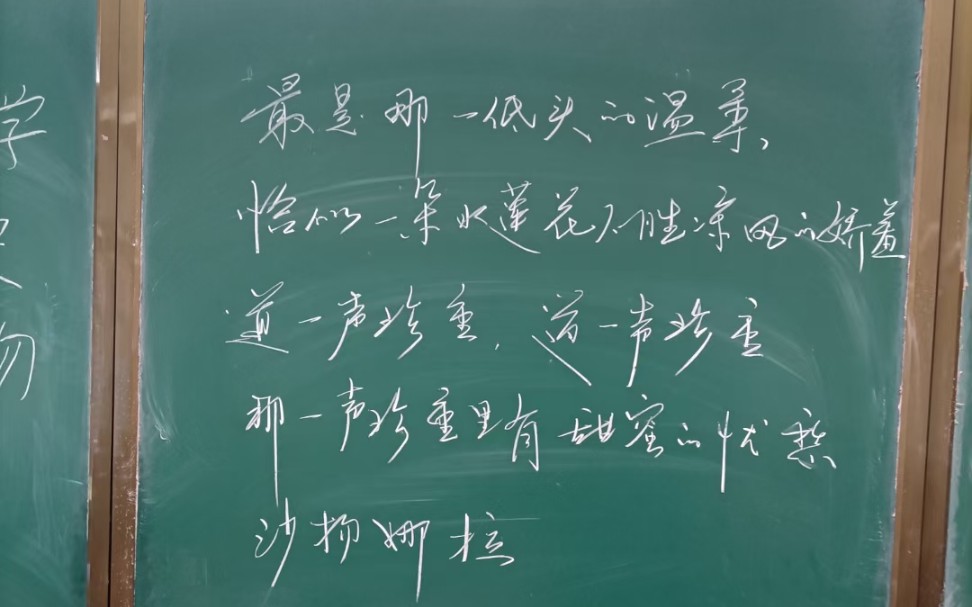 学
勿
最是那一低头的温柔，
恰似一朵水莲花不胜凉风的娇羞
道一声珍重，道一声珍重
那一声珍重里有甜蜜的忧愁
沙扬娜拉